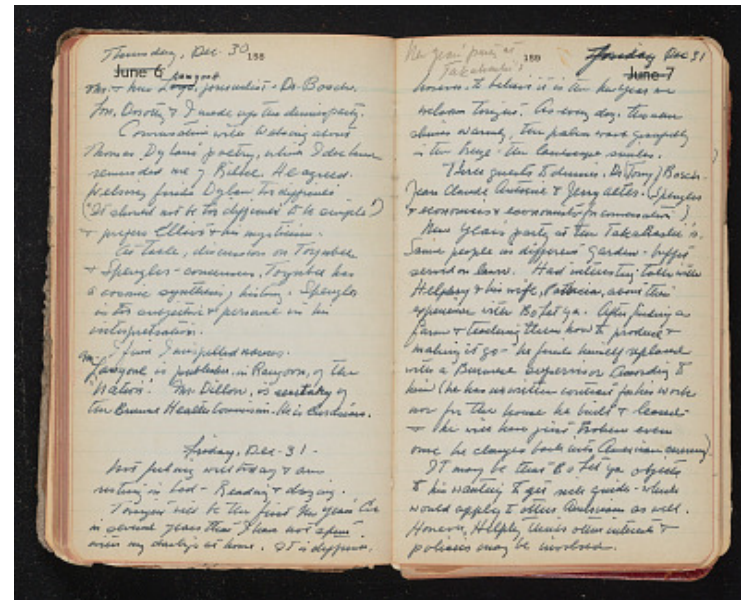 Thursday, Dec. 30 158
June 6
Mr. & Mrs. journalist - Dr. Bosch.
Jon, Dorothy & I made up the dinner party.
Conversation with Watson about
Thomas Dylan's poetry, which I do
reminded me of Rilke. He agreed.
finds Dylan too difficult
("It should not be too difficult to be simple")
& prefers Elliot & his mysticism.
At table, discussion on Toynbee
& Spengler - consensus, Toynbee has
a cosmic synthesis, history. Spengler
is too subjective & personal in his
interpretation.
I find I misspelled names.
is publisher, in Rangoon, of the
"Nation". Mr. Dillon, is secretary of
the Burma Health Commission. He is
Friday, Dec - 31 -
Not feeling well today & am
resting in bed - Reading & dozing.
Tonight will be the first New Years' Eve
in several years that I have not spent
with my at home. It is difficult,
New Years' party at
Takahashi's
159 Friday Dec 31
June 7
however, to believe it is the New Year we
welcome tonight. As every day, the sun
shines warmly, the palms wave gracefully
in the breeze - the landscape smiles.
Three guests to dinner, Dr. (Tony) Bosch.
Jean Claude & Jerry (Spengler
& economics & economists for conversation!)
New Years party at the Takahashi's.
Same people in different garden - buffet
served on lawn. Had interesting talk with
& his wife, Patricia, about their
experience with Bo Let Ya. After finding a
farm & teaching them how to produce &
making it go - he finds himself replaced
with a Burmese supervisor. According to
him (he has no written contract for his work
nor for the house he built & leased
& he will have great problem even
once he changes back into American currency).
It may be that Bo Let Ya objects
to his wanting to get rich quick - which
would apply to other Americans as well.
However, thinks other interests &
policies may be involved.